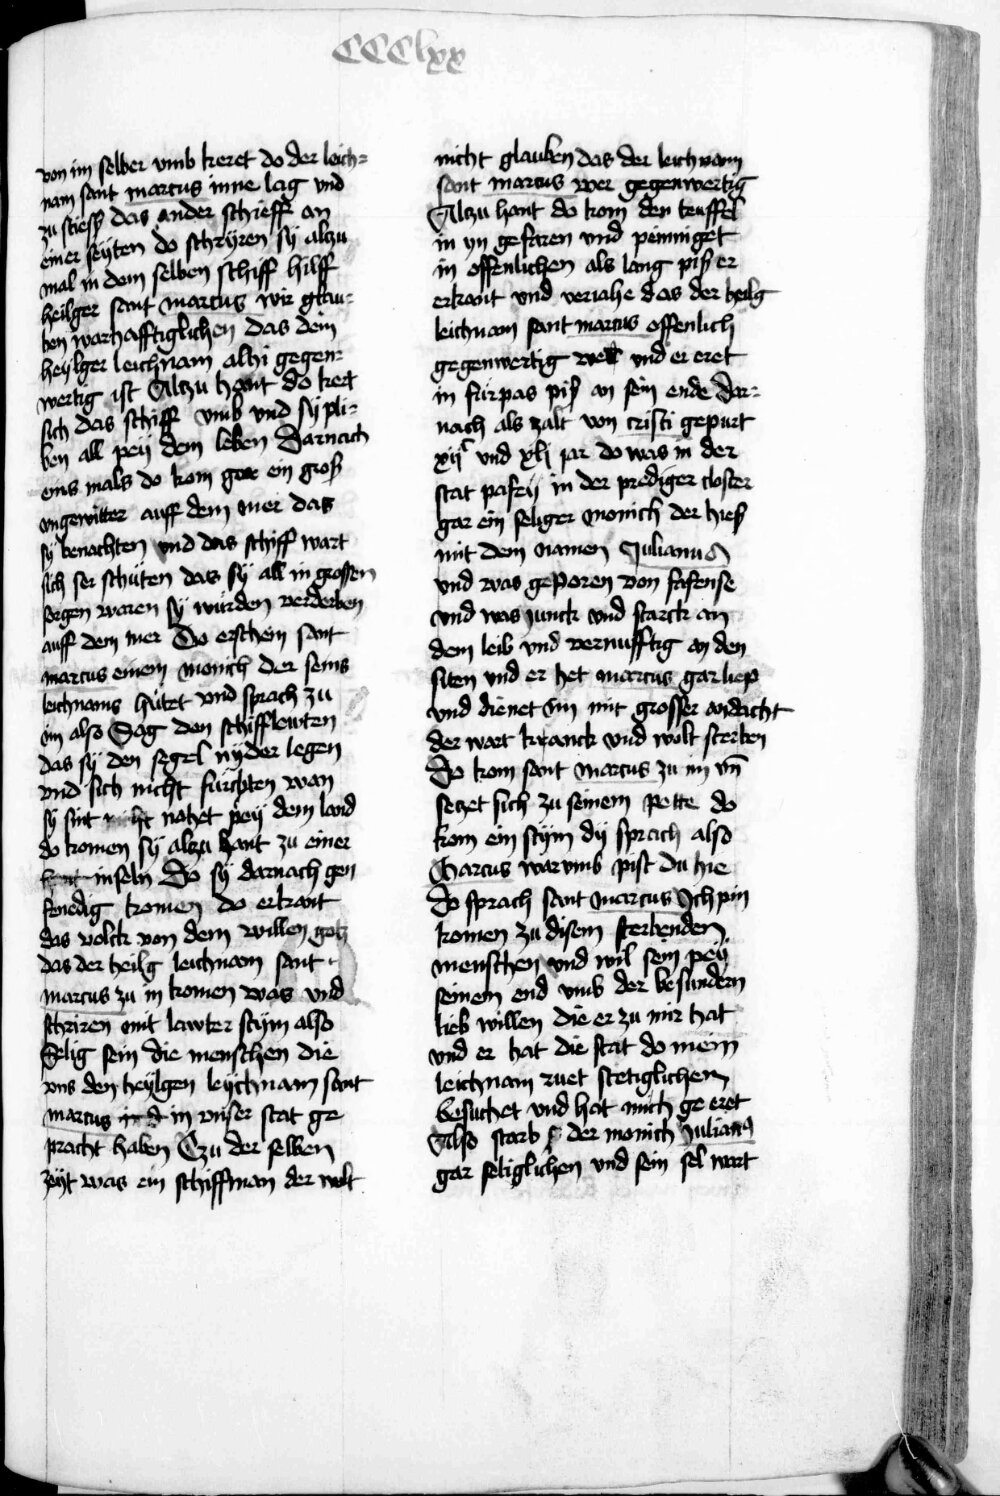 CCClxx
von im selber vmb keret do der leich-
nam sant marcus inne lag vnd
zu stiesß das ander schieff an
einer seyten do schryren sy alzu
mal in dem selben schiff hilff
heilger sant marcus wir glau-
ben warhafftiglichen das dein
heylger leichnam alhi gegen-
wertig ist Alzu hant do kert
sich das schiff vmb vnd sy pli-
ben all pey dem leben Darnach
eins mals do kom gar ein groß
vngewitter auff dem mer das
sy benachten vnd das schiff wart
sich ser schüten das sy all in grossen
sorgen waren sy würden verderben
auff dem mer Do erschein sant
marcus einem monich der seins
leichnams hütet vnd sprach zu
im also Sag den schifflewten
das sy den segel nyder legen
vnd sich nicht fürchten wan
sy sint nicht nahet pey dem land
do komen sy alzu hant zu einer
inseln Do sy darnach gen
fenedig komen do erkant
das volck von dem willen gotz
das der heilg leichnam sant
marcus zu in komen was vnd
schriren mit lawter stym also
Selig sein die menschen die
vns den heylgen leychnam sant
marcus in vnser stat ge
pracht haben Czu der selben
zeyt was ein schiffman der wolt
nicht glauben das der leichnam
sant marcus wer gegenwertig
Alzu hant do kom den teuffel
in yn gefaren vnd peinniget
in offenlichen als lang piß er
erkant vnd veriahe das der heilg
leichnam sant marcus offenlich
gegenwertig wer vnd er eret
in fürpas piß an sein ende Dar-
nach als zalt von cristi gepurt
xijc vnd xlj jar do was in der
stat pafey in der prediger closter
gar ein seliger monich der hieß
mit dem namen Julianus
vnd was geporen von fafense
vnd was junck vnd starck an
dem leib vnd vernufftig an den
siten vnd er het marcus gar liep
vnd dienet im mit grosser andacht
der wart kranck vnd wolt sterben
Do kom sant marcus zu im vn̄
setzet sich zu seinem pette do
kom ein stym dy sprach also
Marcus warvmb pist du hie
Do sprach sant marcus Ich pin
komen zu disem sterbenden
menschen vnd wil sein pey
seinem end vmb der besundern
lieb willen die er zu mir hat
vnd er hat die stat do mein
leichnam ruet stetiglichen
besuchet vnd hat mich ge eret
Also starb der monich Julianus
gar seliglichen vnd sein sel wart